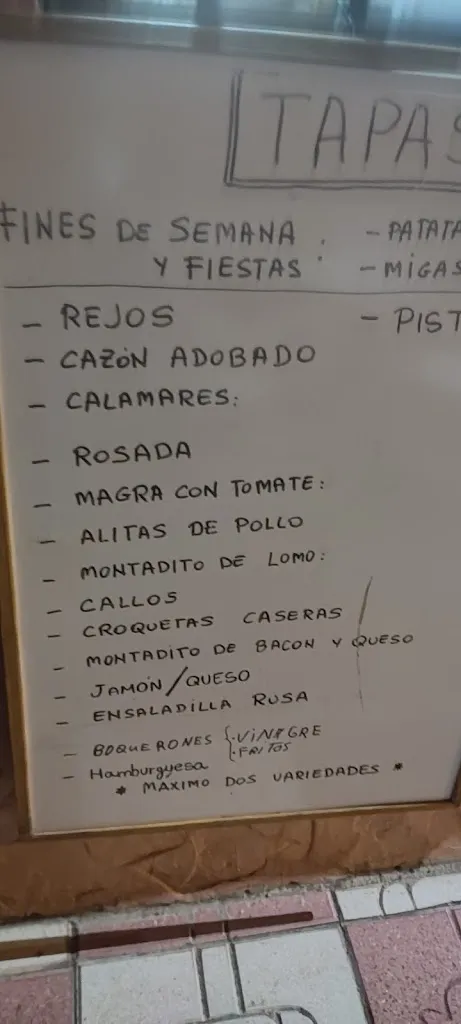 TAPAS
FINES DE SEMANA
Y FIESTAS :
- REJOS
- CAZÓN ADOBADO
- CALAMARES:
- ROSADA
- MAGRA CON TOMATE:
- ALITAS DE POLLO
- MONTADITO DE LOMO:
- CALLOS
- CROQUETAS CASERAS
- MONTADITO DE BACON Y QUESO
- JAMÓN/QUESO
- ENSALADILLA RUSA
- BOQUERONES { .VINAGRE
.FRITOS
- Hamburguesa
* MAXIMO DOS VARIEDADES *
- PATATA
- MIGAS
- PIST